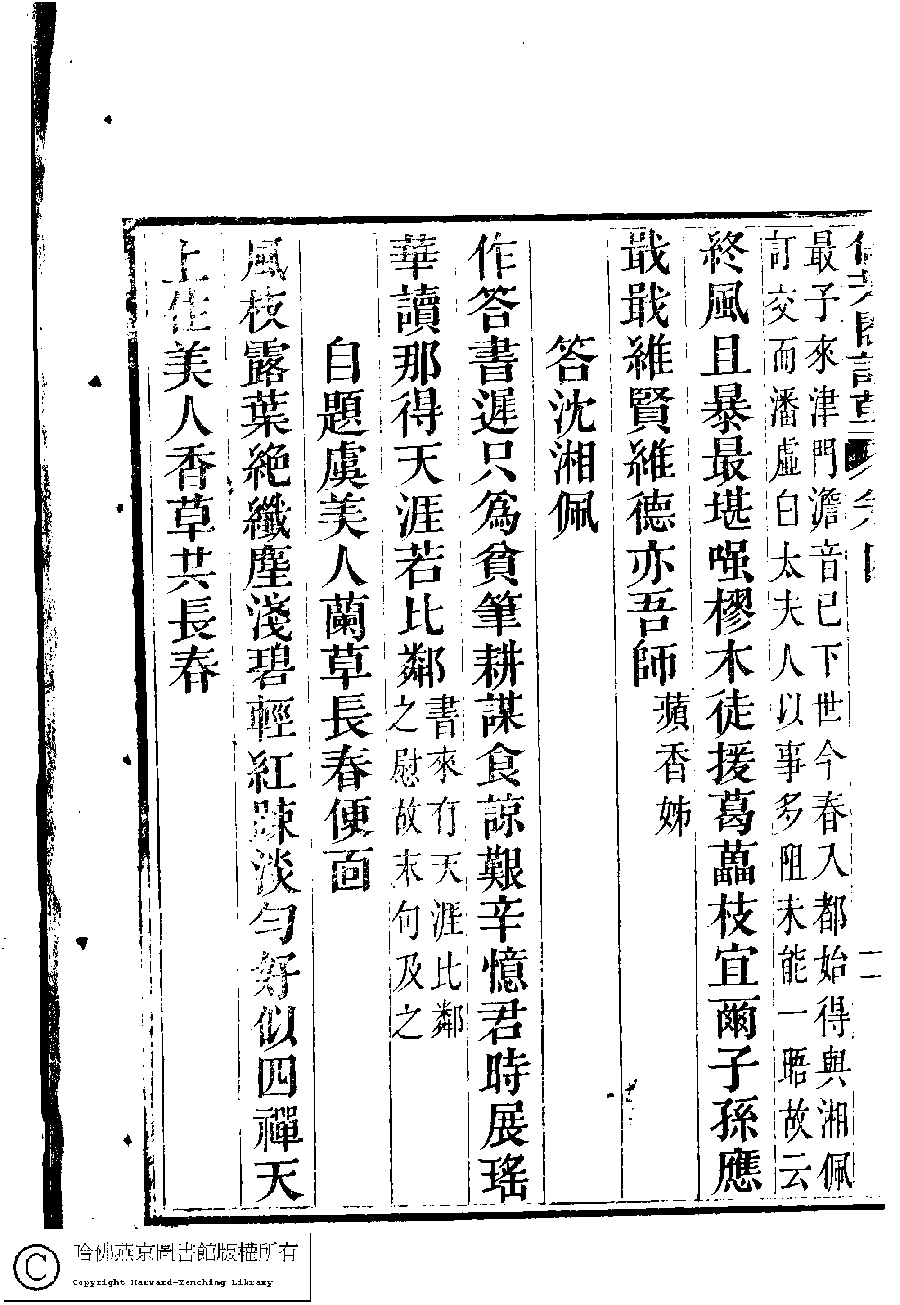 二
最子來津門澹音已下世今春入都始得與湘佩
訂交而潘虛白太夫人以事多阻未能一晤故云
終風且暴最堪嗤樛木徒援葛藟枝宜爾子孫應
戢戢維賢維德亦吾師蘋香姊
答沈湘佩
作答書遲只為貧筆耕謀食諒艱辛憶君時展瑤
華讀那得天涯若比鄰書來有天涯比鄰
之慰故末句及之
自題虞美人蘭草長春便面
風枝露葉絶纖塵淺碧輕紅踈淡勻好似四禪天
上住美人香草共長春
哈佛燕京圖書館版權所有
Copyright Harvard-Yenching Library